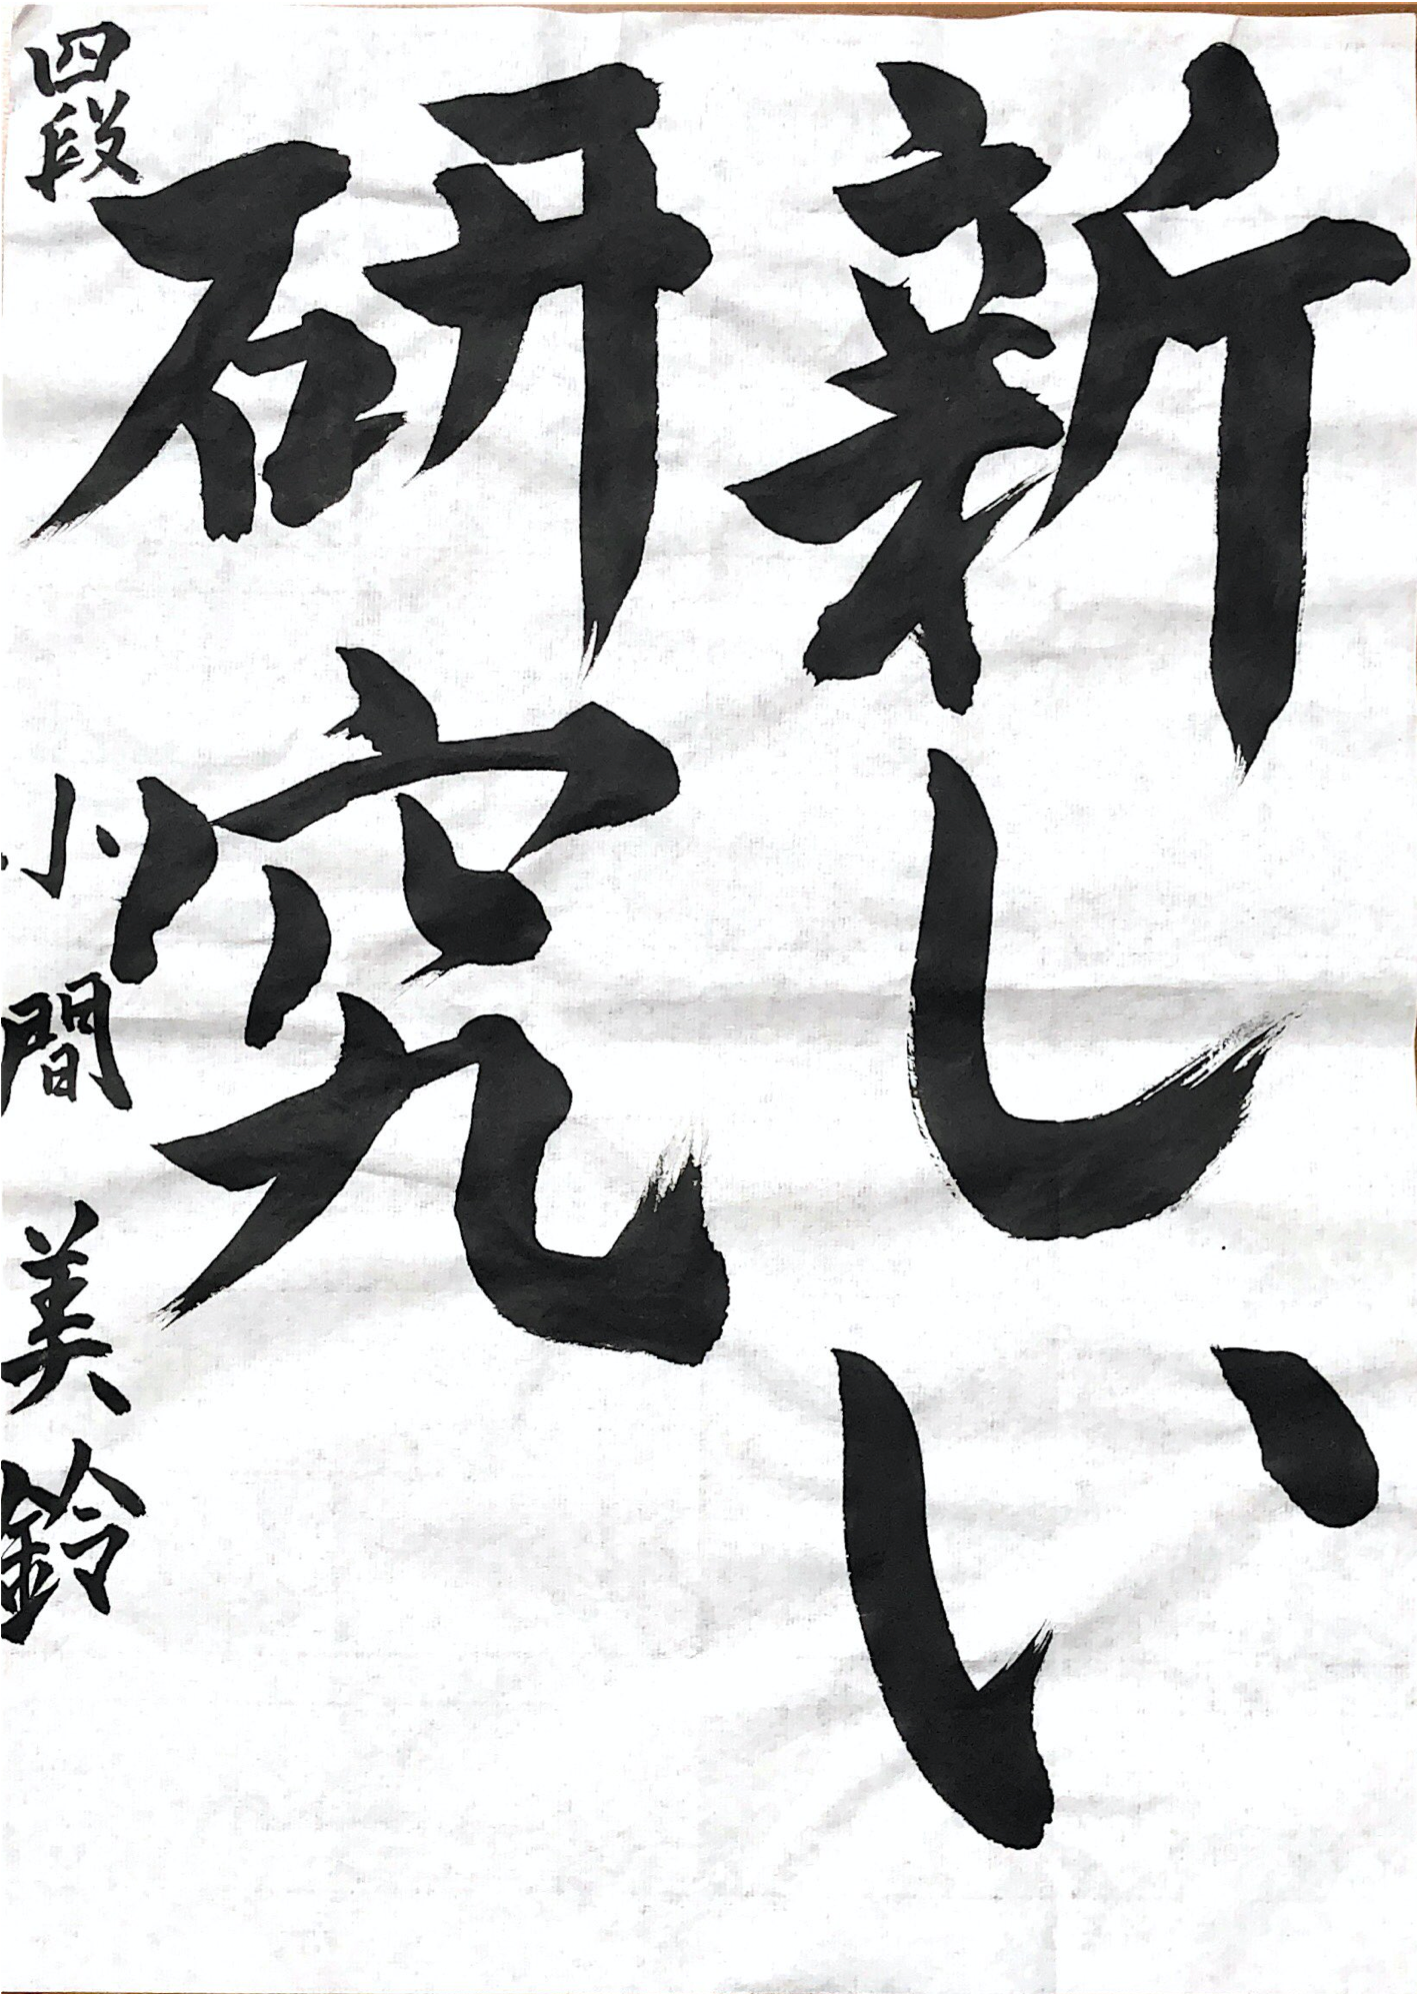 新しい
研究
四段 小間 美鈴